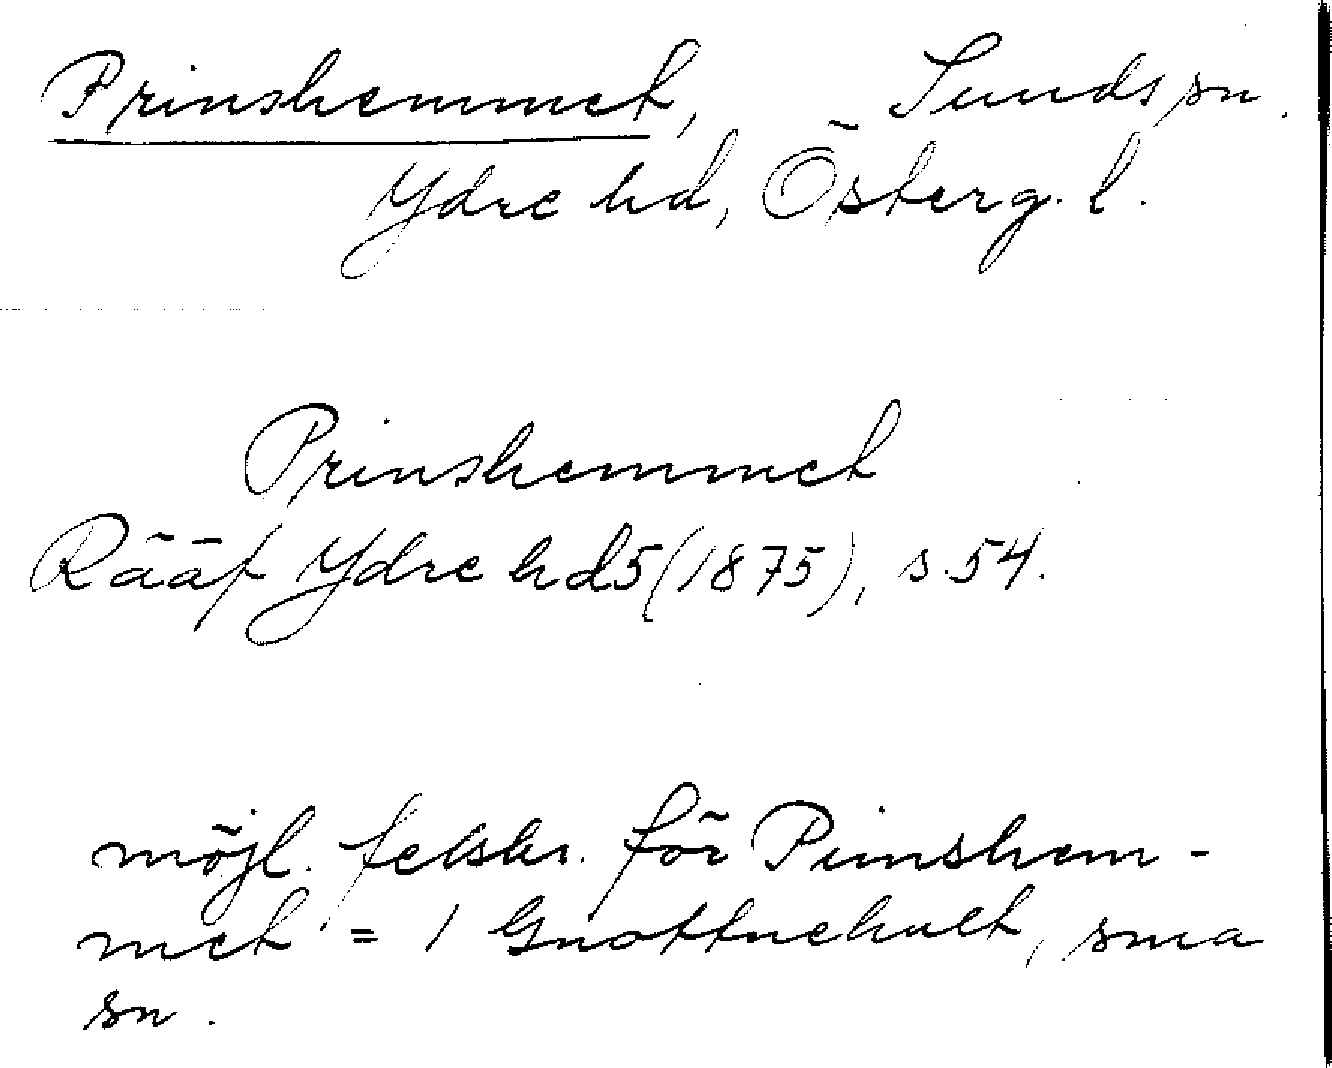 Prinshemmet, Sunds sn.
Ydre hd, Österg. l.
Prinshemmet
Rääf Ydre hd 5 (1875), s. 54.
möjl. felskr. för Pinnshem-
met = 1 Gnottnehult, sma
sn.